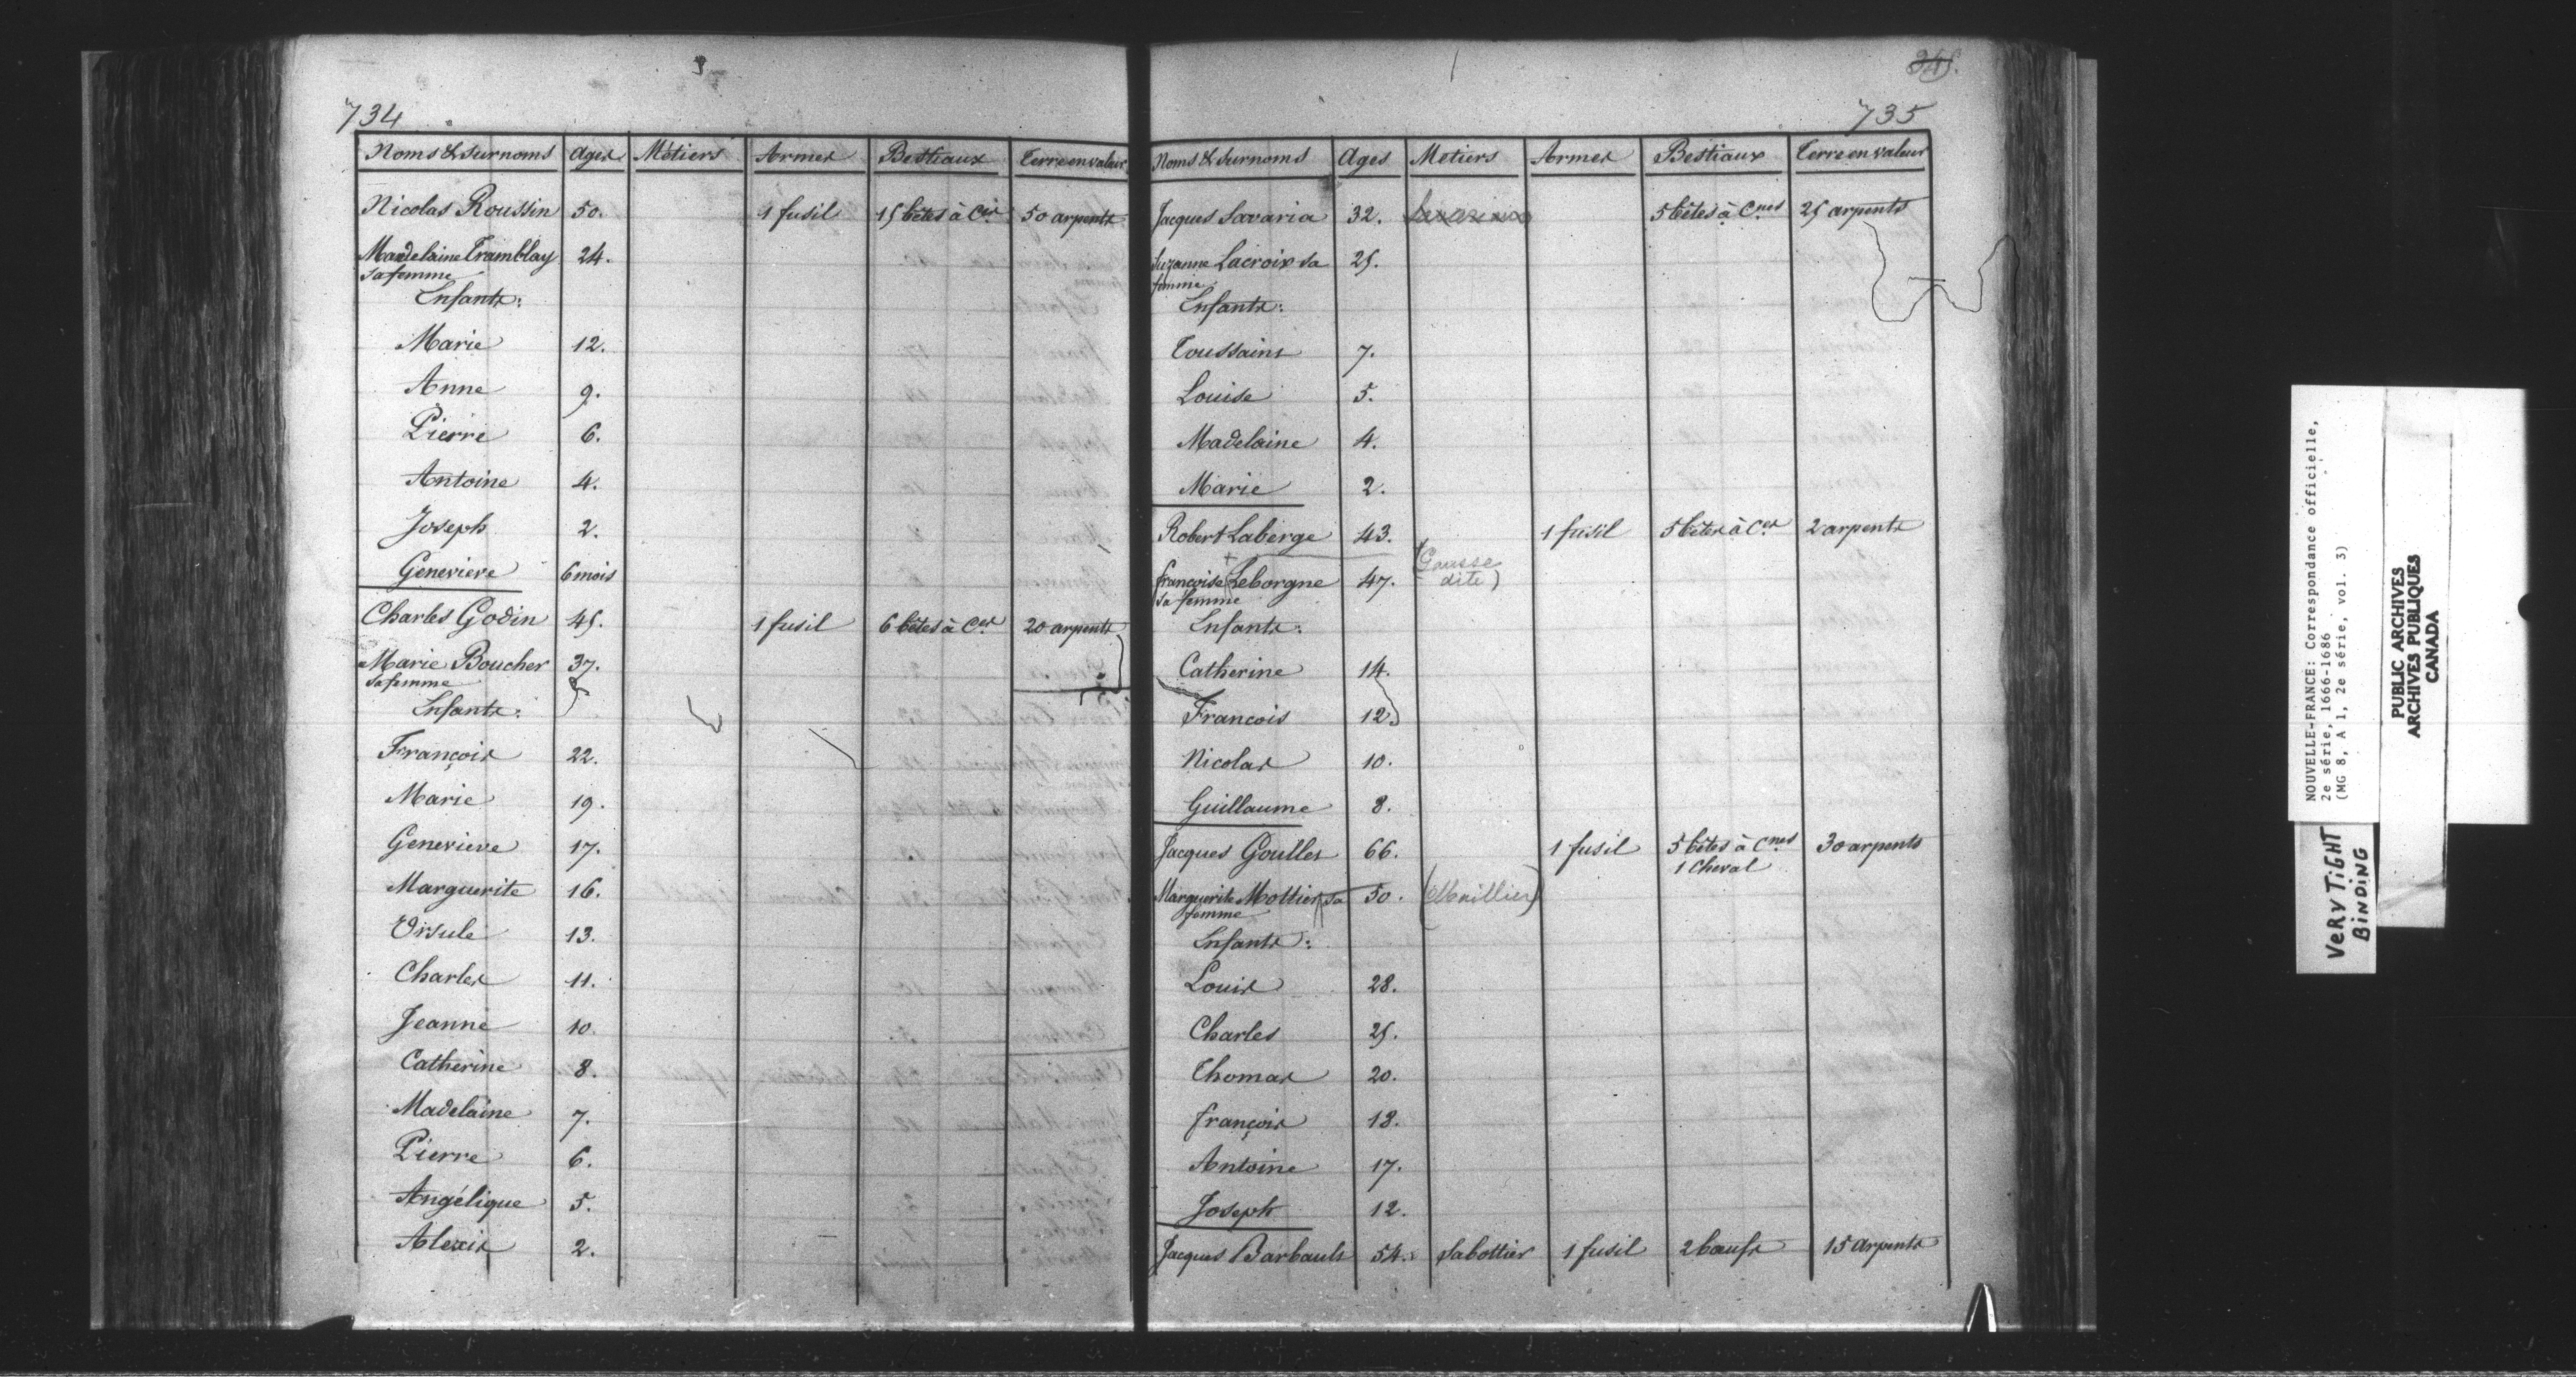 734
Noms & surnoms Ages Métiers Armes Bestiaux Terre en valeur
Nicolas Roussin 50. 1 fusil 15 bêtes à Ces 50 arpents
Madelaine Tramblay 24.
sa femme
Enfants:
Marie 12.
Anne 9.
Pierre 6.
Antoine 4.
Joseph 2.
Genevieve 6 mois
Charles Godin 45. 1 fusil 6 bêtes à Ces 20 arpents
Marie Boucher 37.
sa femme
Enfants:
François 22.
Marie 19.
Genevieve 17.
Marguerite 16.
Ursule 13.
Charles 11.
Jeanne 10.
Catherine 8.
Madelaine 7.
Pierre 6.
Angélique 5.
Alexis 2.
735
Noms & surnoms Ages Metiers Armes Bestiaux Terre en valeur
Jacques Savaria 32. 5 bêtes à Cnes 25 arpents
Suzanne Lacroix sa 25.
femme
Enfants:
Toussaint 7.
Louise 5.
Madelaine 4.
Marie 2.
Robert Laberge 43. 1 fusil 5 bêtes à Ces 2 arpents
françoise Leborgne 47. (Gausse
sa femme dite)
Enfants:
Catherine 14.
Francois 12.
Nicolas 10.
Guillaume 8.
Jacques Goullet 66. 1 fusil 5 bêtes à Cnes 30 arpents
1 Cheval
Marguerite Mottier sa 50. (Maillier)
femme
Enfants:
Louis 28.
Charles 25.
Thomas 20.
françois 18.
Antoine 17.
Joseph 12.
Jacques Barbault 54. Sabottier 1 fusil 2 bœufs 15 arpents
NOUVELLE-FRANCE: Correspondance officielle,
2e série, 1666-1686
(MG 8, A 1, 2e série, vol. 3)
VERY TIGHT
BINDING
PUBLIC ARCHIVES
ARCHIVES PUBLIQUES
CANADA